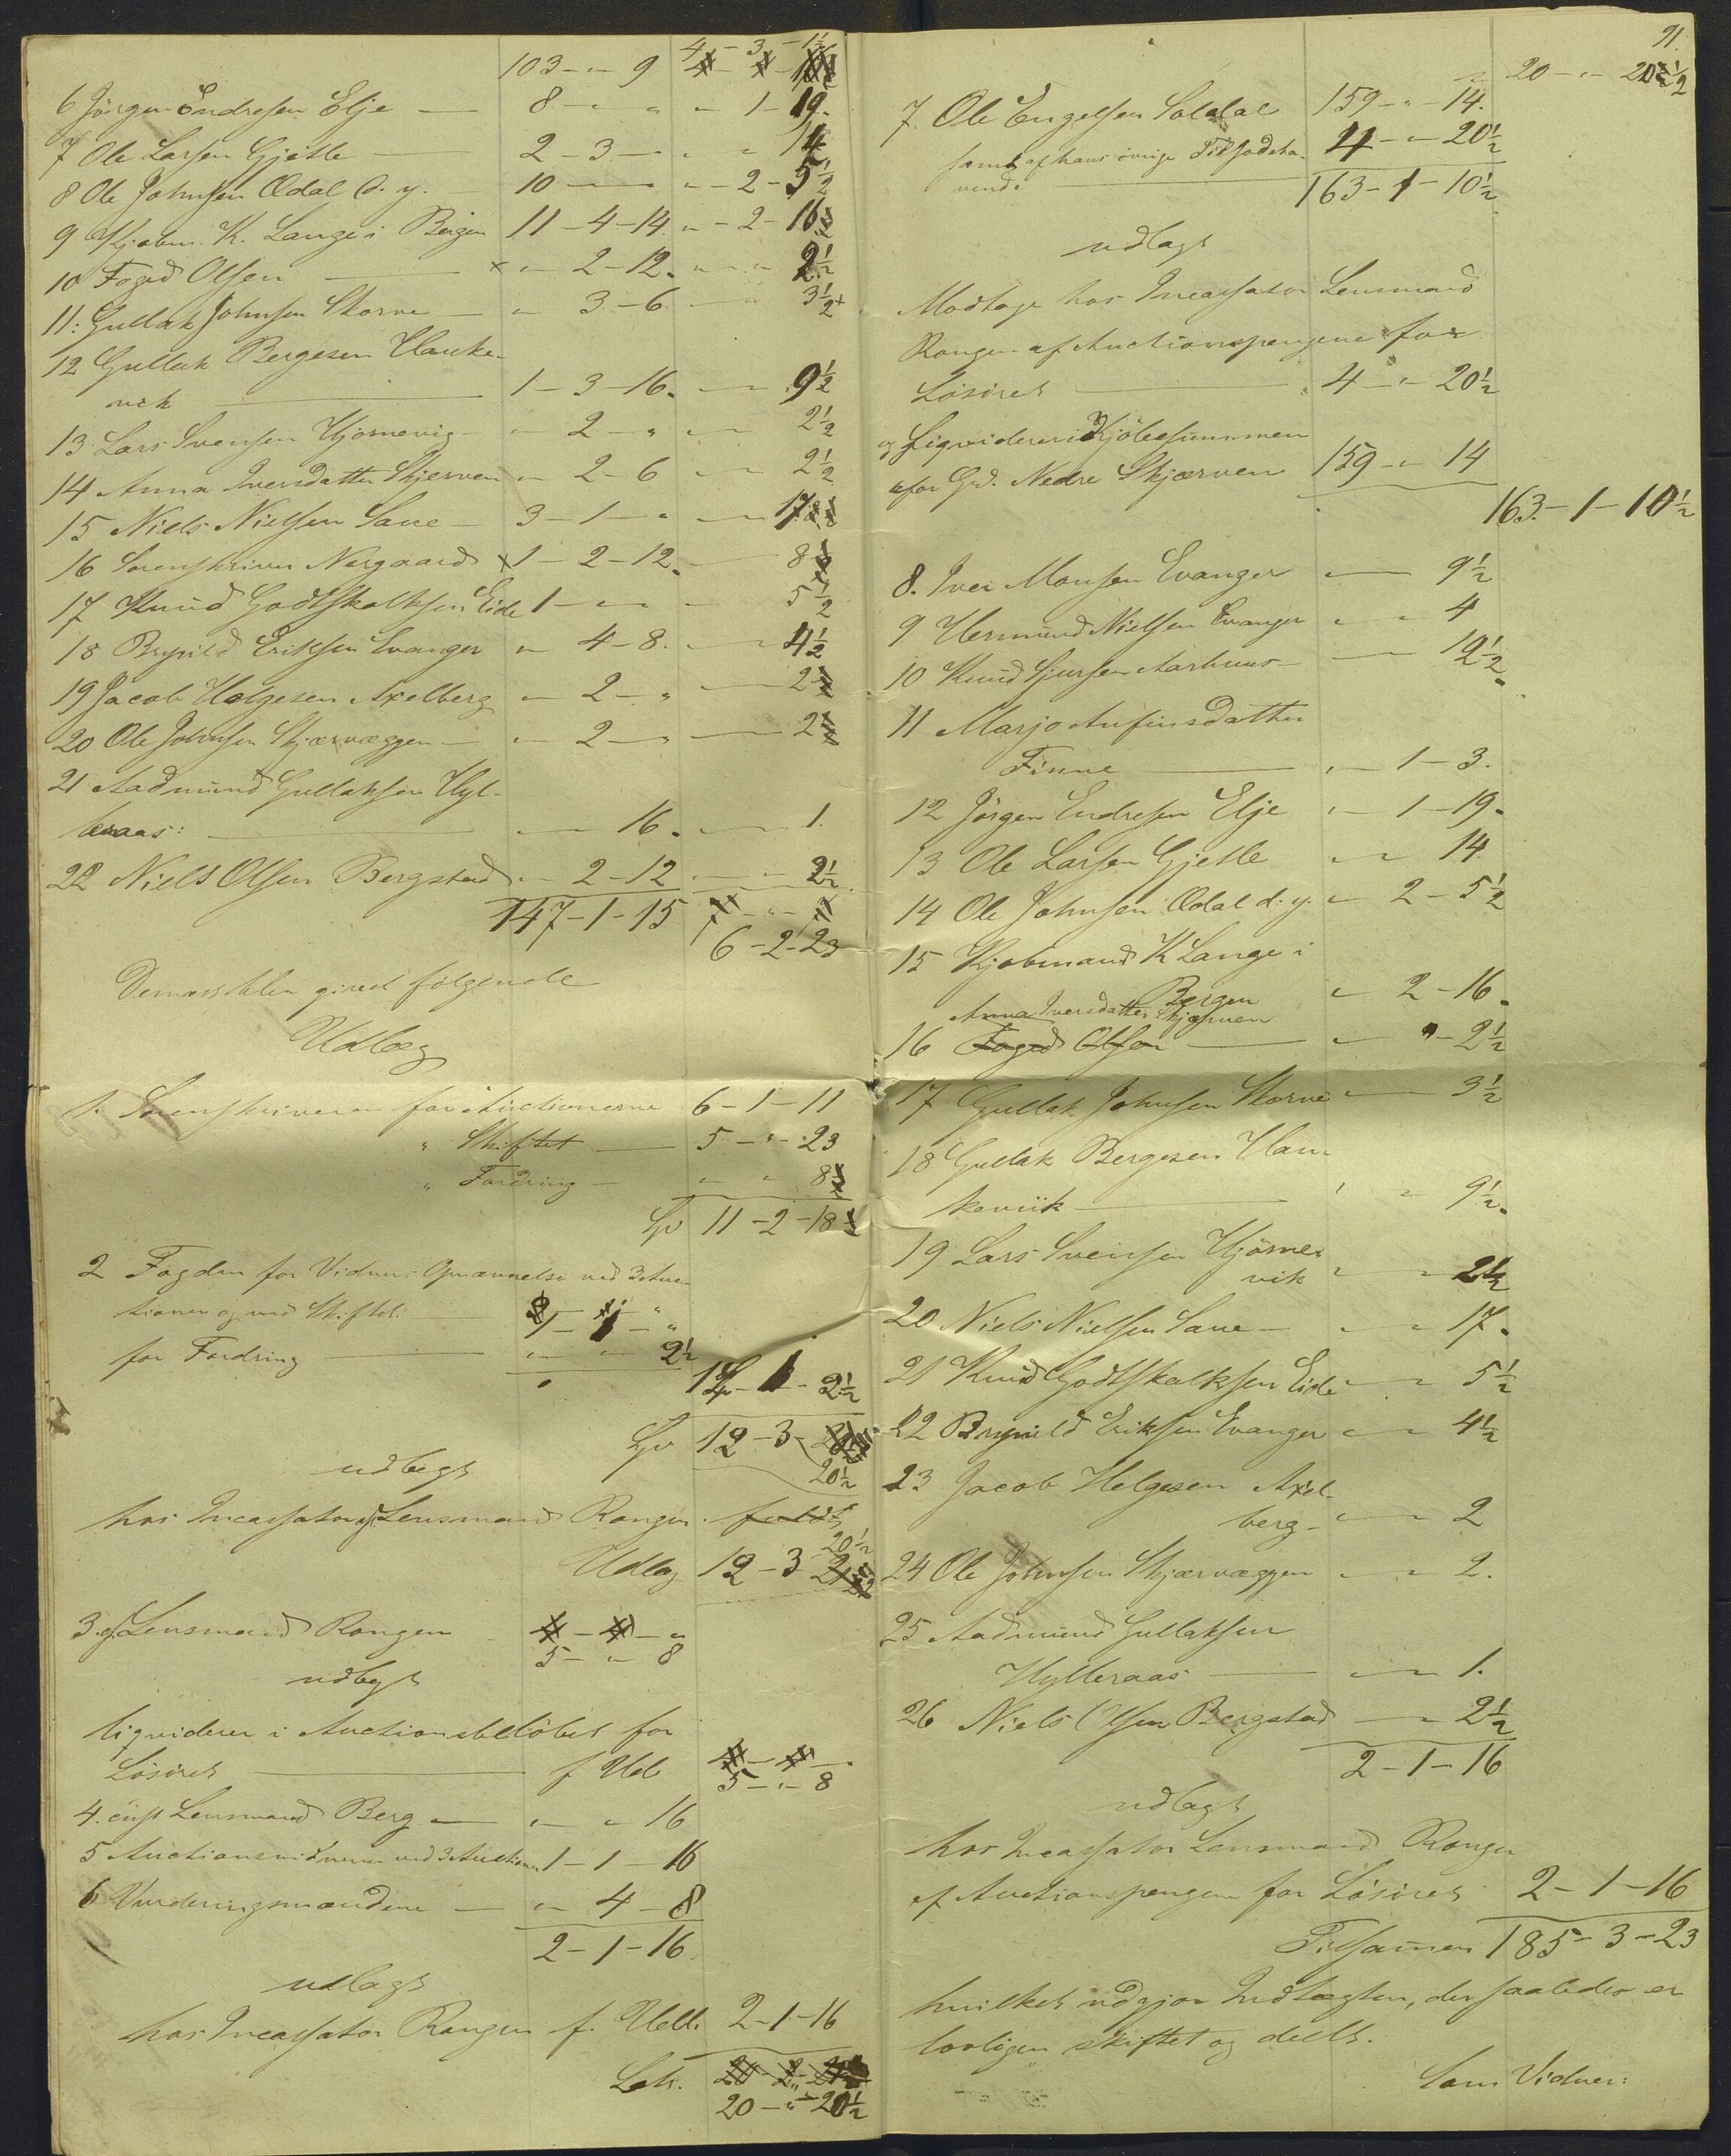 103 - " - 9 4 - 3 - 1½
6 Jörgen Endresen Elje — 8 - " - " " - 1 - 19.
7 Ole Larsen Gjetle — 2 - 3 - " " " 14
8 Ole Johnsen Ødal d. y. 10 - " - " " - 2 - 5½
9 Kjøbm. K. Lange i Bergen 11 - 4 - 14. " - 2 - 16
10 Foged Olsen — × " - 2 - 12. " - " 2½
11: Gullak Johnsen Skorve — " 3 - 6. — " 3½
12 Gullak Bergesen Hauke-
vik — 1 - 3 - 16. — " 9½
13. Lars Svensen Hjørnevig — " - 2 - " — " 2½
14 Anna Iversdatter Skjerven " - 2 - 6 — " 2½
15 Niels Nielsen Saue — 3 - 1 - " — " 17
16 Sorenskriver Nergaard × 1 - 2 - 12. — 8
17 Knud Godtskalksen Eide 1 - " - " — 5½
18 Brynild Eriksen Evanger " - 4 - 8. — " 4½
19 Jacob Helgesen Axelberg " - 2 - " — 2
20 Ole Johnsen Skjærvæggen — " - 2 - " — 2
21 Aadmund Gullaksen Hyl-
leraas: — " - " 16. — " 1.
22 Niels Olsen Bergstad " - 2 - 12 — " 2½
147 - 1 - 15
6 - 2 - 23
følgende
Udlæg
1. Sorenskriveren for Auctionerne 6 - 1 - 11
" Skiftet — 5 - " - 23
" Fordring — " " 8
11 - 2 - 18
2 Fogden for Vidners Opnævnelse ved 3 Auc-
tioner og ved Skiftet. — 1 - 1 - "
for Fordring — " - " 2½
1 - 1 - 2½
12 - 3 -
20½
udlagt
hos Incassator Lensmand Rongen
20½
Udlæg 12 - 3
3. Lensmand Rongen
5 - " - 8
udlagt
liqviderer i Auctionsbeløbet for
Løsøret — f Udl
5 - " - 8
4. Lensmand Berg — " - " 16
5 Auctionsvidnerne ved 3 Auctioner 1 - 1 - 16
6 Vurderingsmændene — " 4 - 8
2 - 1 - 16.
udlagt
hos Incassator Rongen f. Udl. 2 - 1 - 16
Lat.
20 - " - 20½
91.
20 - " - 20½
7. Ole Engelsen Soldal 159 - " - 14.
samt af hans øvrige Tilgodeha- 4 - " - 20½
vende — 163 - 1 - 10½
udlagt
Modtage hos Incassator Lensmand
Rongen af Auctionspengene for
Løsøret — 4 - " - 20½
og Liqviderer i Kjøbesummen
for Grd. Nedre Skjærven 159 - " - 14
163. - 1 - 10½
8. Iver Monsen Evanger — " 9½
9 Hermund Nielsen Evanger " " 4
10 Knud Sjursen Aarhuus — " 19½
11 Marjo Anfinsdatter
Finne — " - 1 - 3.
12 Jörgen Endresen Elje " - 1 - 19.
13 Ole Larsen Gjetle " - " 14
14 Ole Johnsen Ødal d. y. " - 2 - 5½
15 Kjøbmand K Lange i
Bergen " - 2 - 16.
Anna Iversdatter Skjærven
16 Foged Olsen — " " - 2½
17 Gullak Johnsen Skorve — " 3½
18 Gullak Bergesen Hau-
keviik — " " 9½.
19 Lars Svensen Hjørne-
vik " " 2½
20 Niels Nielsen Saue — " " 17.
21 Knud Godtskalksen Eide — " 5½
22 Brynild Eriksen Evanger " " 4½
23 Jacob Helgesen Axel-
berg — " " 2
24 Ole Johnsen Skjærvæggen " " 2.
25 Aadmund Gullaksen
Hylleraas — " " 1.
26 Niels Olsen Bergstad — " 2½
2 - 1 - 16
udlagt
hos Incassator Lensmand Rongen
af Auctionspengene for Løsøret 2 - 1 - 16
Tilsammen 185 - 3 - 23
hvilket udgjør Indtægten, der saaledes er
lovligen skiftet og deelt.
Som Vidner: